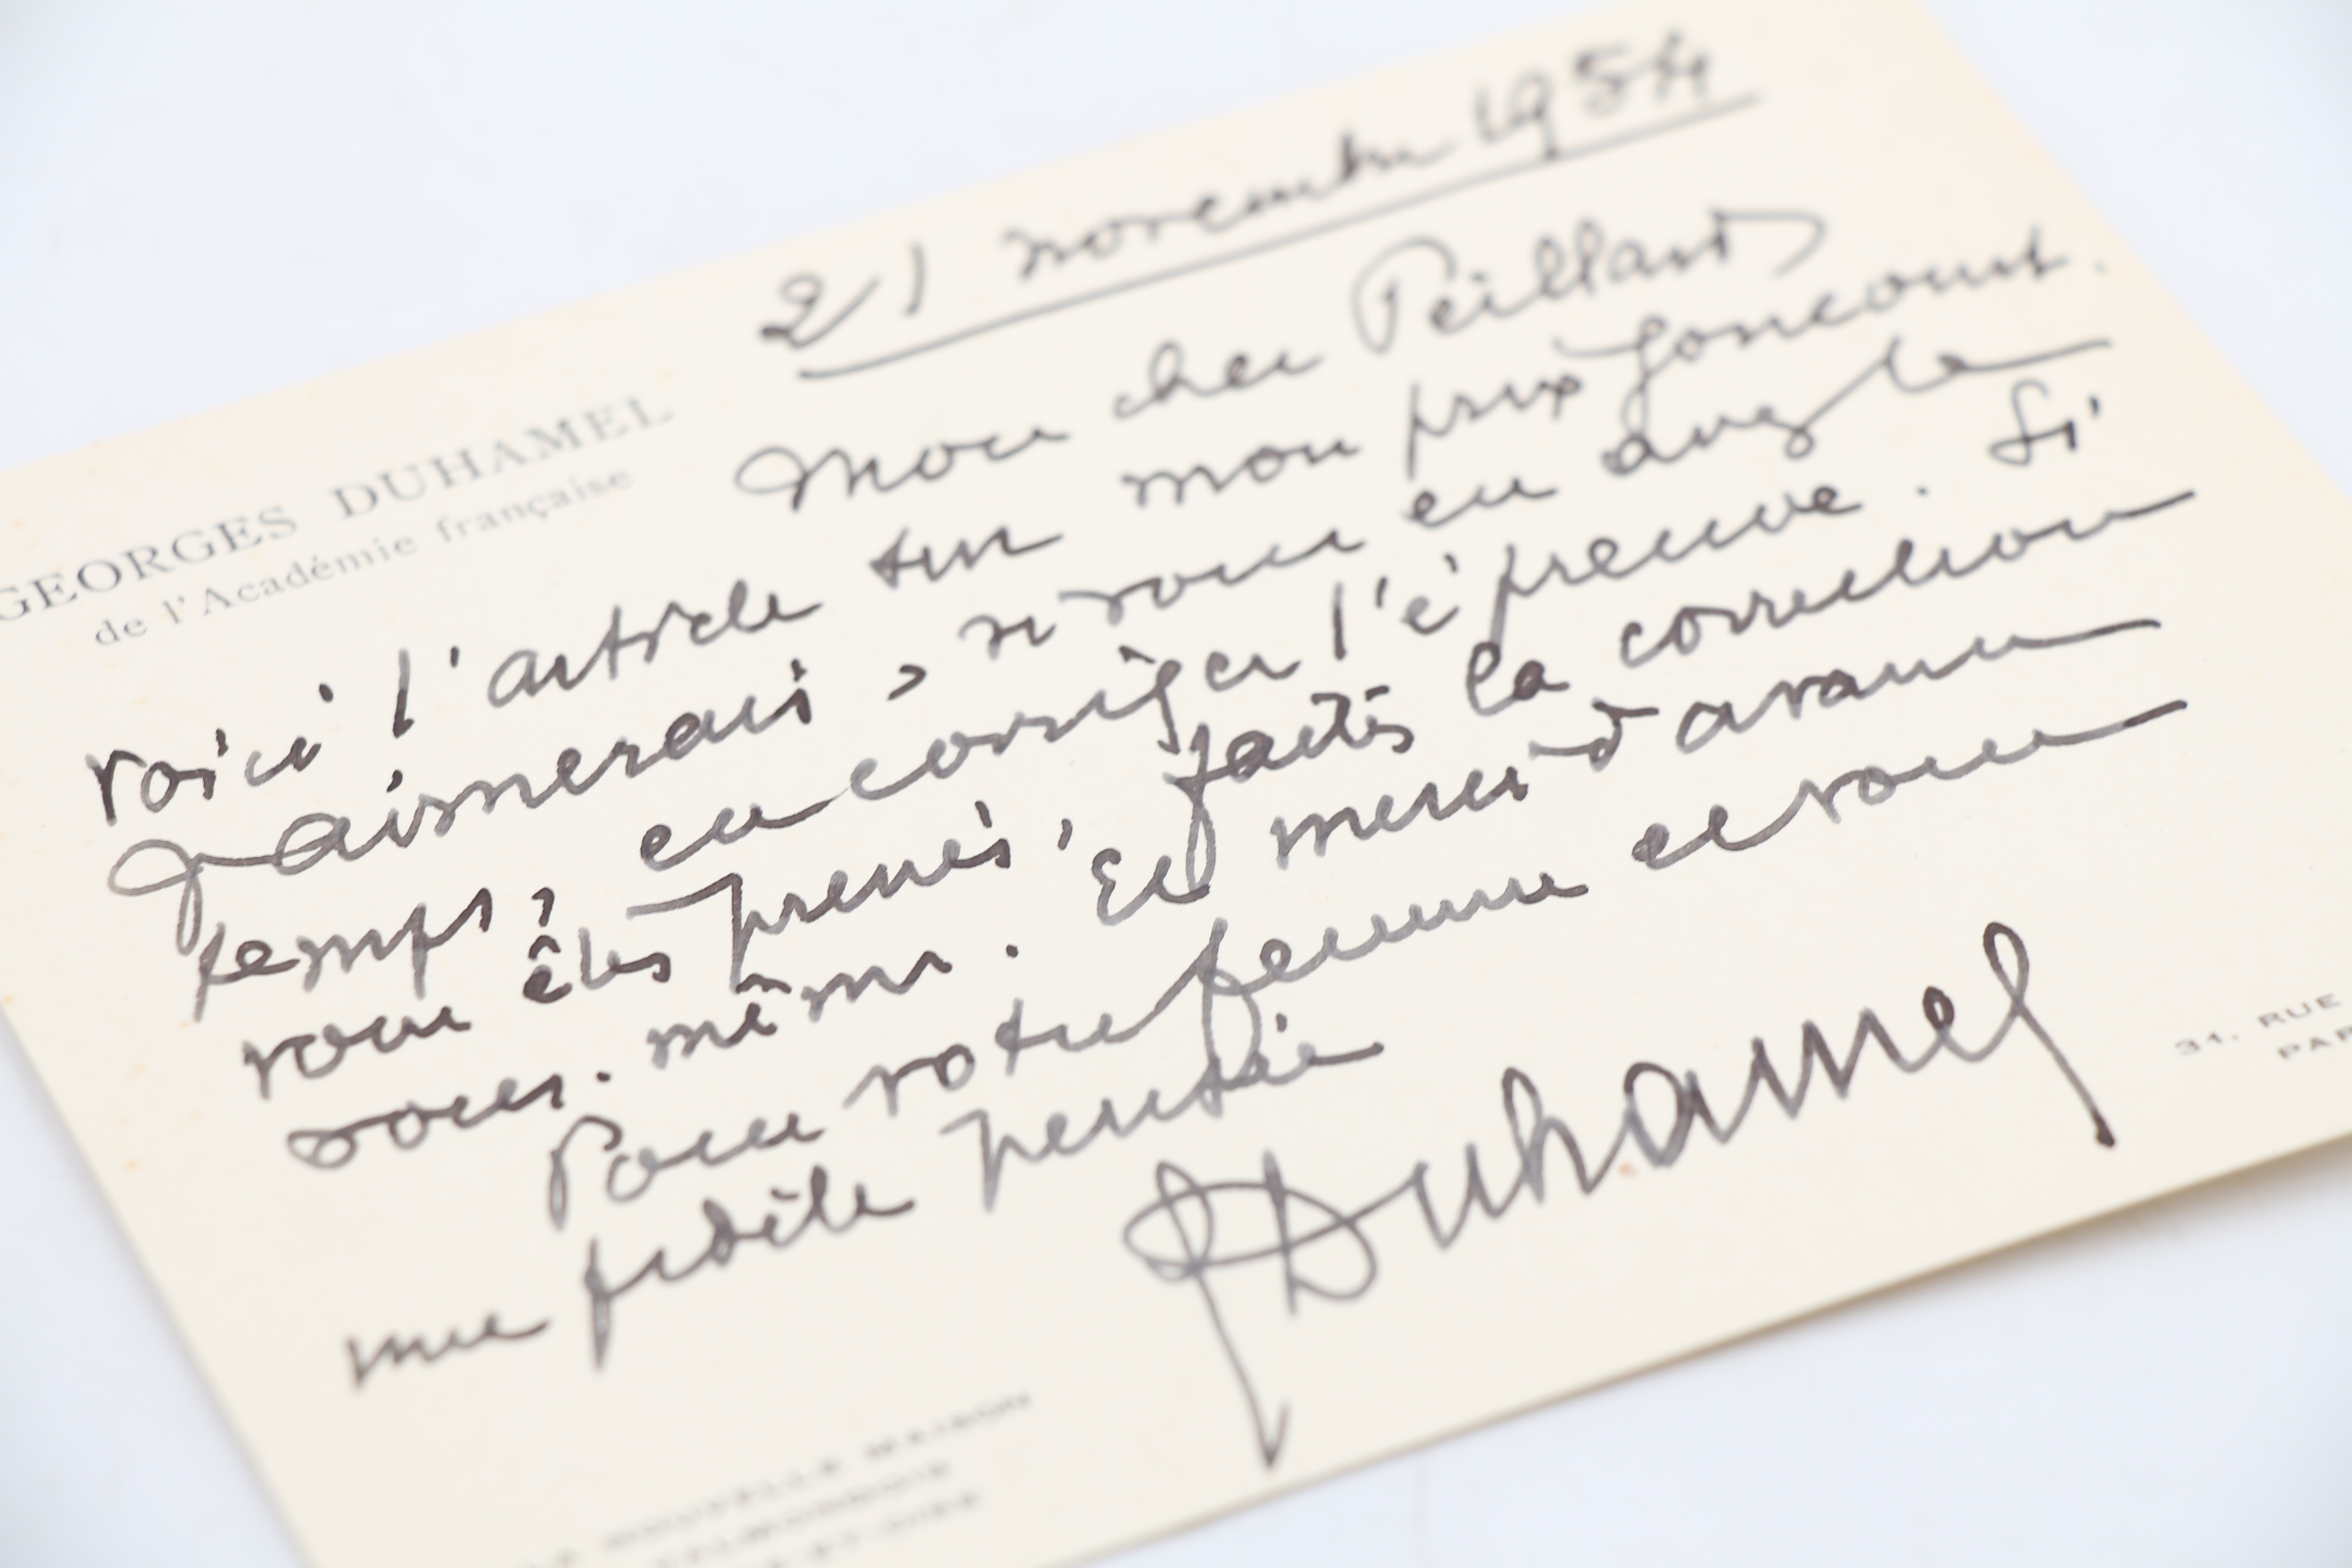 GEORGES DUHAMEL
de l'Académie française
21 novembre 1954
Mon cher Peillard
voici l'article sur mon prix Goncourt.
J'aimerais, si vous en avez le
temps, en corriger l'épreuve. Si
vous êtes pressés, faites la correction
vous-même. Et merci d'avance
Pour votre femme et vous
une fidèle pensée
Duhamel
31, RUE
NOUVELLE MAISON
VALMONDOIS